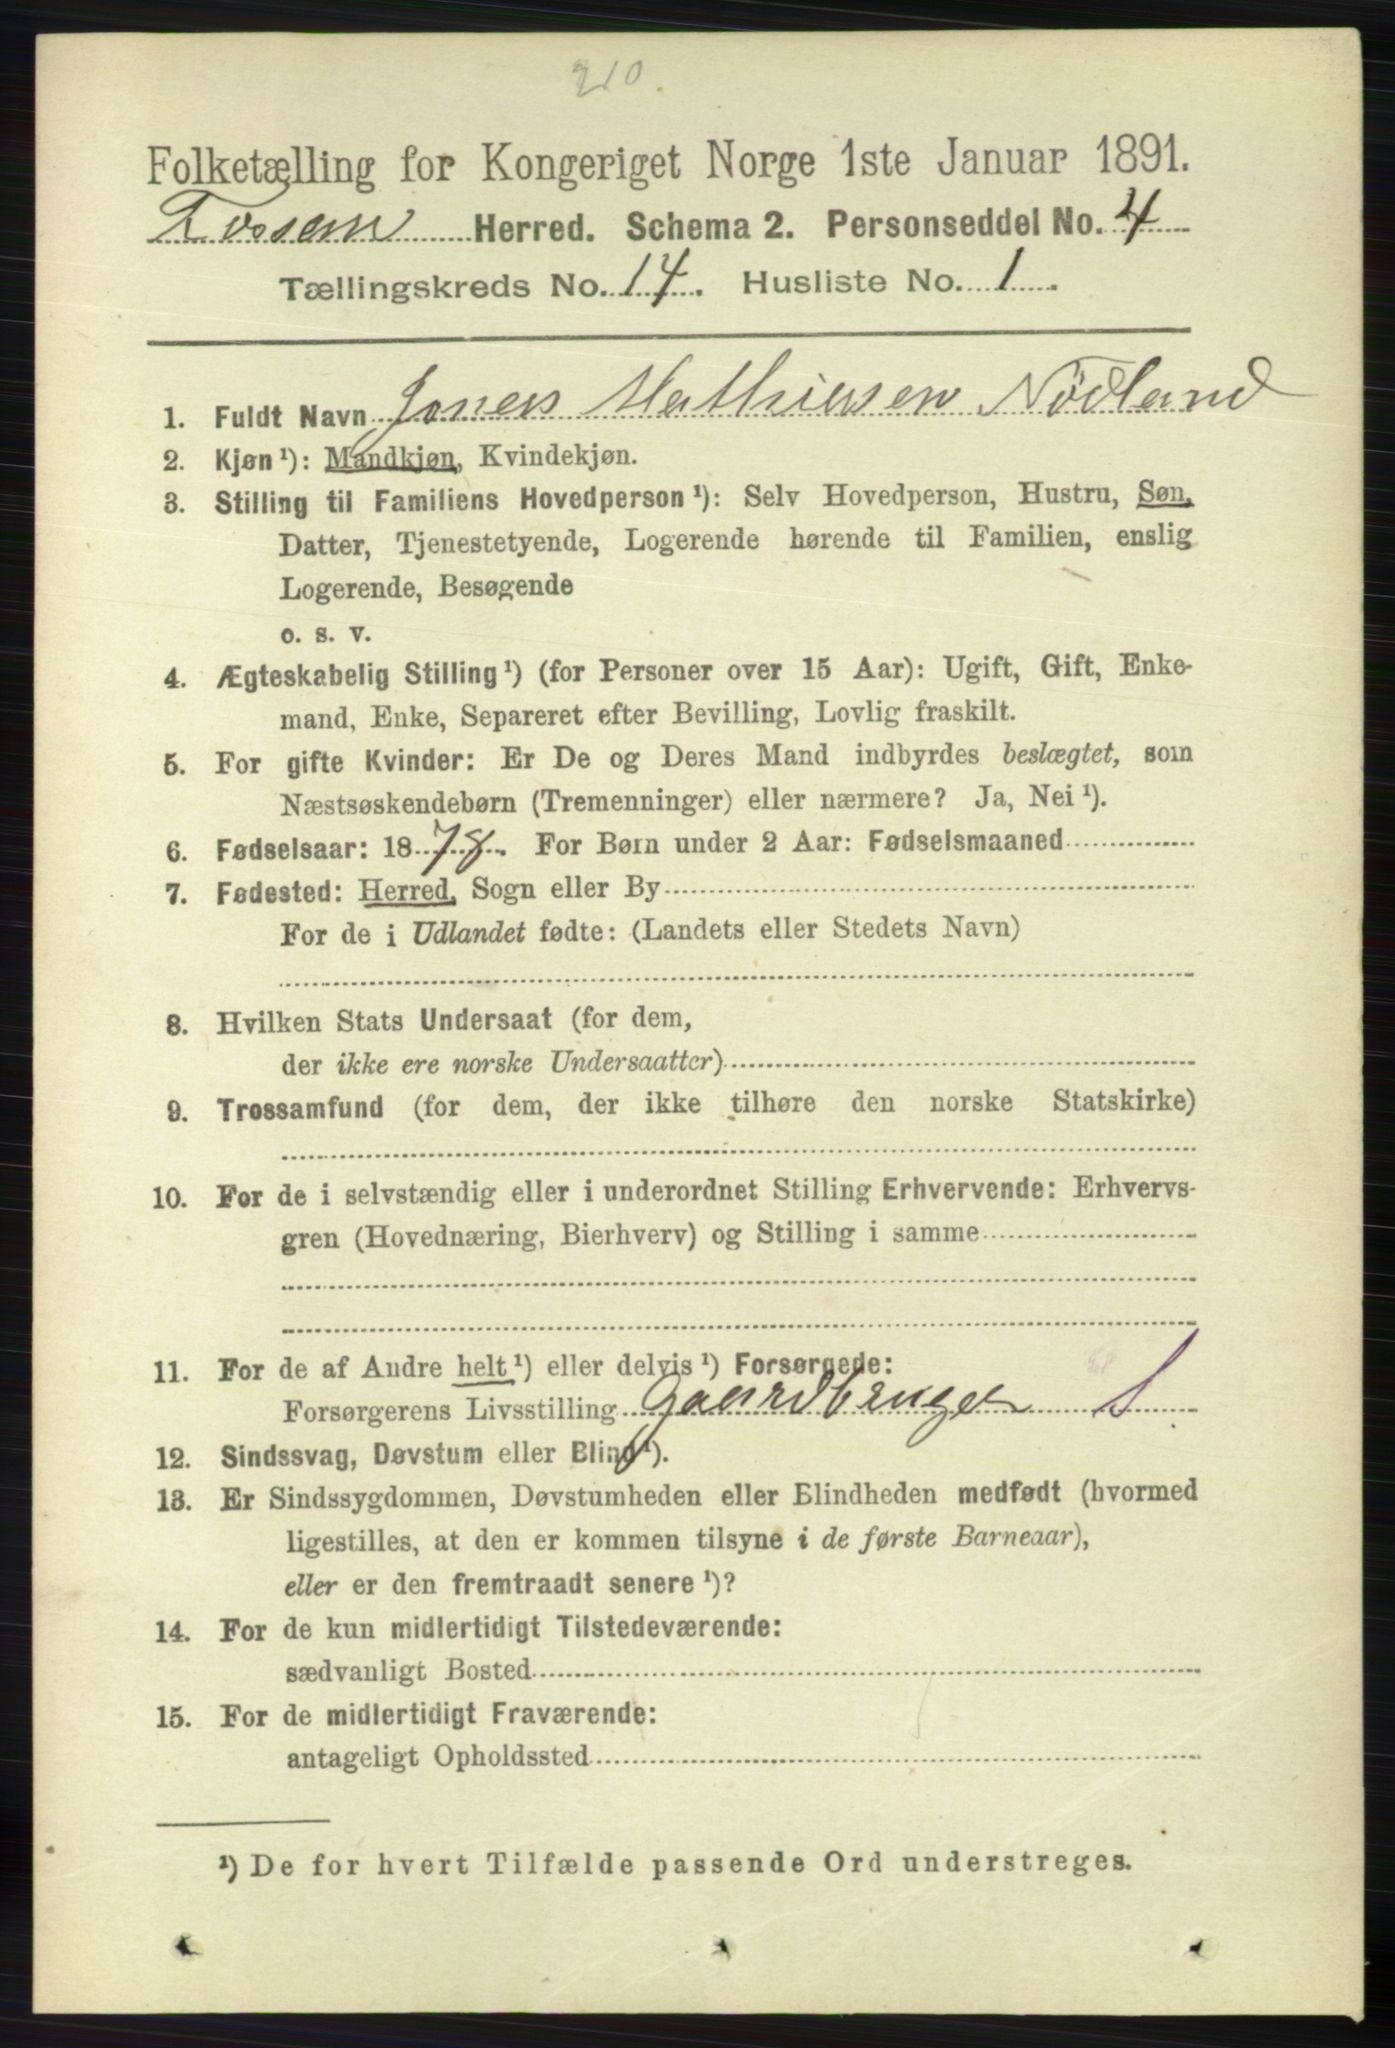 210.
Folketælling for Kongeriget Norge 1ste Januar 1891.
Fossem Herred. Schema 2. Personseddel No. 4
Tællingskreds No. 14. Husliste No. 1.
1. Fuldt Navn Jonas Mathiesen Nödland
2. Kjøn¹): Mandkjøn, Kvindekjøn.
3. Stilling til Familiens Hovedperson¹): Selv Hovedperson, Hustru, Søn,
Datter, Tjenestetyende, Logerende hørende til Familien, enslig
Logerende, Besøgende
o. s. v.
4. Ægteskabelig Stilling¹) (for Personer over 15 Aar): Ugift, Gift, Enke-
mand, Enke, Separeret efter Bevilling, Lovlig fraskilt.
5. For gifte Kvinder: Er De og Deres Mand indbyrdes beslægtet, som
Næstsøskendebørn (Tremenninger) eller nærmere? Ja, Nei¹).
6. Fødselsaar: 1878. For Børn under 2 Aar: Fødselsmaaned
7. Fødested: Herred, Sogn eller By
For de i Udlandet fødte: (Landets eller Stedets Navn)
8. Hvilken Stats Undersaat (for dem,
der ikke ere norske Undersaatter)
9. Trossamfund (for dem, der ikke tilhøre den norske Statskirke)
10. For de i selvstændig eller i underordnet Stilling Erhvervende: Erhvervs-
gren (Hovednæring, Bierhverv) og Stilling i samme
11. For de af Andre helt¹) eller delvis¹) Forsørgede:
Forsørgerens Livsstilling Gaardbruger S
12. Sindssvag, Døvstum eller Blind¹).
13. Er Sindssygdommen, Døvstumheden eller Blindheden medfødt (hvormed
ligestilles, at den er kommen tilsyne i de første Barneaar),
eller er den fremtraadt senere¹)?
14. For de kun midlertidigt Tilstedeværende:
sædvanligt Bosted
15. For de midlertidigt Fraværende:
antageligt Opholdssted
¹) De for hvert Tilfælde passende Ord understreges.